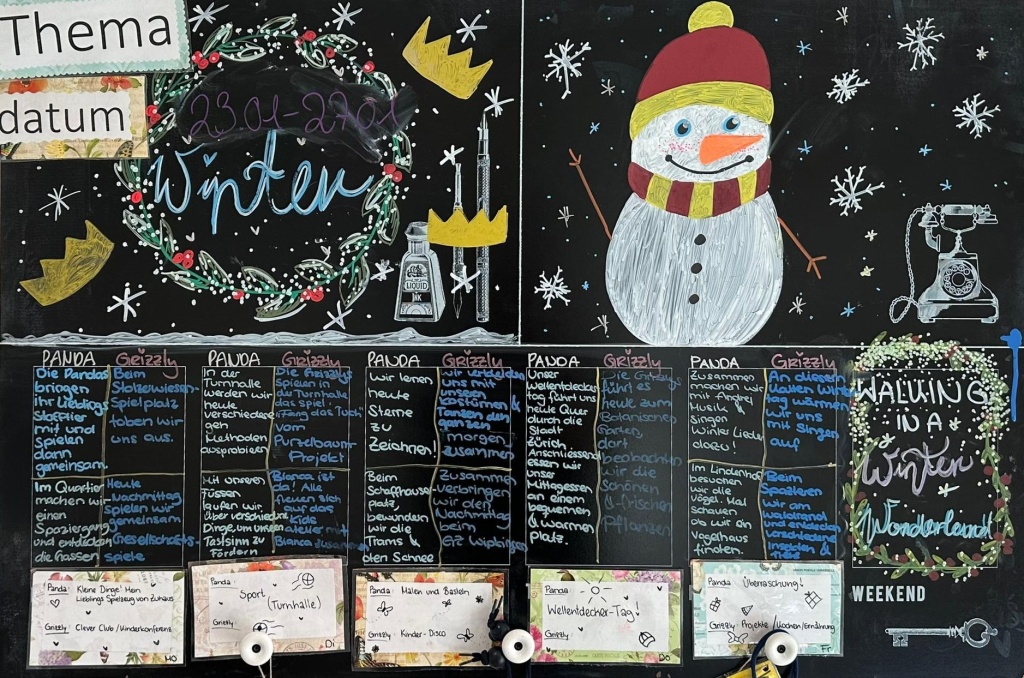 Thema
datum
23.01-27.01
Winter
LIQUID
INK
PANDA
Die Pandas
bringen
ihr Lieblings
Stofftier
mit und
spielen
dann
gemeinsam.
Im Quartier
machen wir
einen
Spaziergang
und entdecken
die Gassen
Grizzly
Beim
Stolzewiesen-
Spielplatz
toben wir
uns aus.
Heute
Nachmittag
spielen wir
gemeinsam
Gesellschafts-
spiele
PANDA
In der
Turnhalle
werden wir
heute
verschiedene
gen
Methoden
ausprobieren
Mit unseren
Füssen
laufen wir
über verschiedene
Dinge, um unseren
Tastsinn zu
Fördern
Grizzly
Die Grizzlys
spielen in
die Turnhalle
das Spiel
"Fang das Tuch"
vom
Purzelbaum-
Projekt
Bianca ist
da! Alle
freuen sich
auf das
Kids
atelier mit
Bianca
PANDA
Wir lernen
heute
Sterne
zu
Zeichnen!
Beim
Schaffhauser
platz
bewundern
wir die
Trams &
den Schnee
Grizzly
Wir verkleiden
uns mit
unseren
Kostümen &
Tanzen den
ganzen
morgen
zusammen
Zusammen
verbringen
den
Nachmittag
beim
GZ Wipkingen
PANDA
Unser
Weltentdecker
tag führt uns
heute Quer
durch die
Stadt
Zürich.
Anschliessend
essen wir
unser
Mittagessen
an einem
bequemen
& warmen
Platz.
Grizzly
Die Grizzlys
führt es
heute zum
Botanischen
Garten,
dort
beobachten
wir die
schönen
&
Pflanzen
PANDA
Zusammen
machen wir
mit Andrej
Musik &
singen
Winter Lieder
dazu!
Im Lindenhof
besuchen
wir die
Vögel. Mal
schauen
ob wir ein
Vogelhaus
finden.
Grizzly
An diesem
kalten Win
tag wärmen
wir uns
mit Singen
auf
Beim
Spazieren
wir am
Waldrand
und entdecken
verschiedene
Insekten &
WALKING
IN A
Winter
Wonderland!
WEEKEND
Panda: Kleine Dinge! Mein
Lieblings Spielzeug von Zuhaus
Grizzly: Clever Club/Kinderkonferenz
Mo
Panda:
Sport
(Turnhalle)
Grizzly:
Di
Panda: Malen und Basteln
Grizzly: Kinder-Disco
Panda:
Weltentdecker-Tag!
Grizzly:
Do
Panda: Überraschung!
Grizzly: Projekte/Kochen/Ernährung
Fr